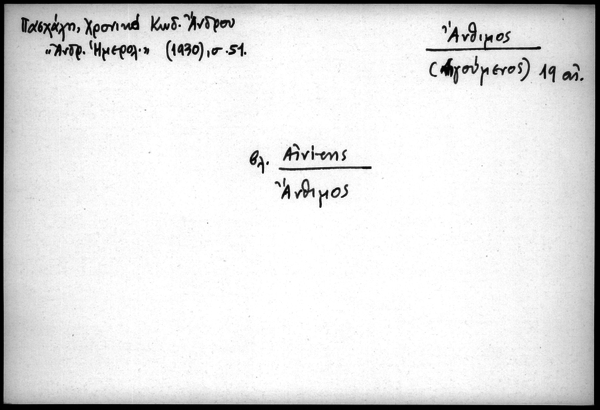 Πασχάλη, Χρονικά Κωδ. Ἄνδρου
«Ἀνδρ. Ἡμερολ.» (1930), σ. 51.
Ἄνθιμος
(ἡγούμενος) 19 αἰ.
βλ. Αἰνίτης
Ἄνθιμος